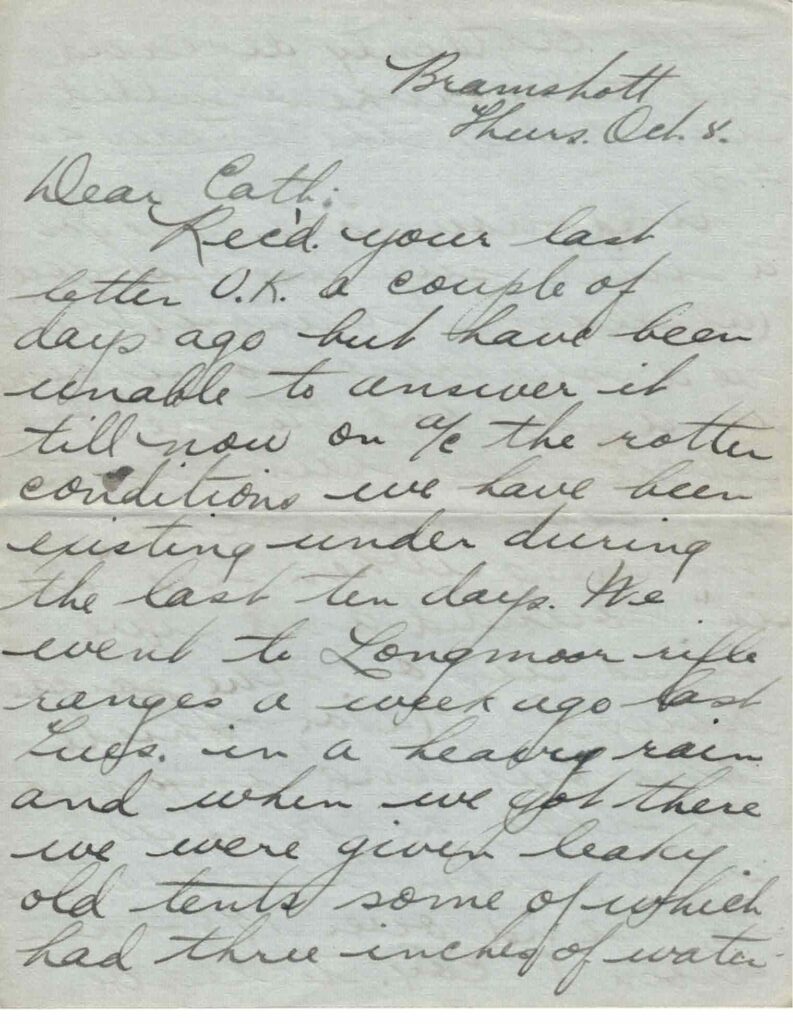 Bramshott
Thurs. Oct. 5.
Dear Cath:
Rec'd. your last
letter O.K. a couple of
days ago but have been
unable to answer it
till now on a/c the rotten
conditions we have been
existing under during
the last ten days. We
went to Longmoor rifle
ranges a week ago last
Tues. in a heavy rain
and when we got there
we were given leaky
old tents some of which
had three inches of water